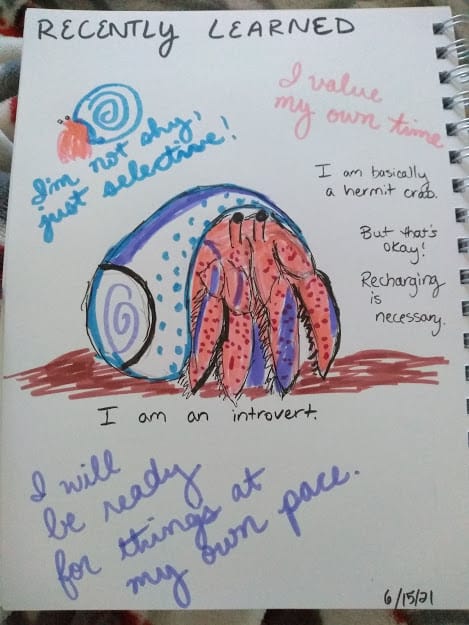 RECENTLY LEARNED
I'm not shy,
just selective!
I value
my own time
I am basically
a hermit crab.
But that's
okay!
Recharging
is
necessary.
I am an introvert.
I will
be ready
for things at
my own pace.
6/15/21